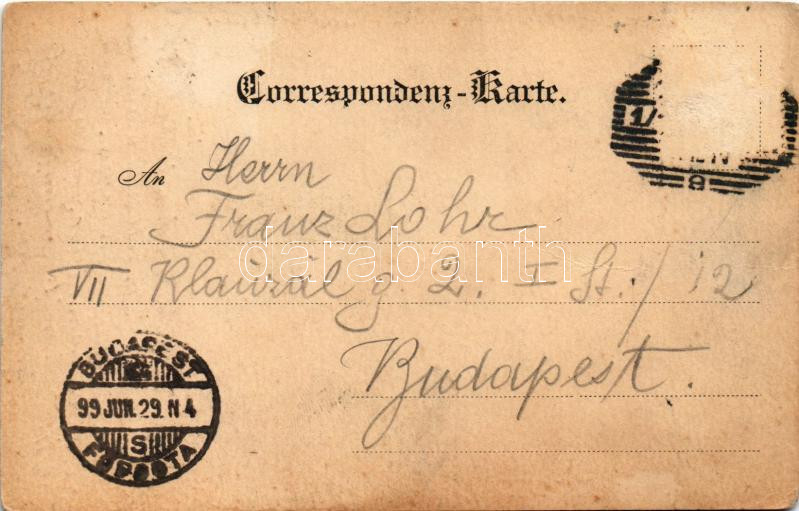 Correspondenz-Karte.
An Herrn
Franz Lohr
VII Klauzál g. 2. I St. / 12
Budapest.
BUDAPEST
99 JUN. 29. N 4
S
FŐPOSTA
1/
9
darabanth.com